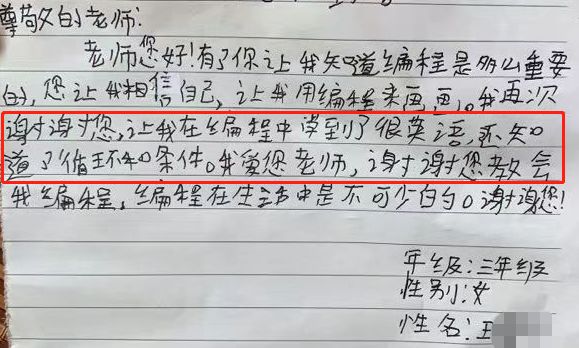 尊敬的老师:
老师您好!有了你让我知道编程是多么重要
的,您让我相信自己,让我用编程来画画。我再次
谢谢您,让我在编程中学到了很英语,还知
道了循环和条件。我爱您老师,谢谢您教会
我编程,编程在生活中是不可少的。谢谢您!
年级:三年级
性别:女
性名:王